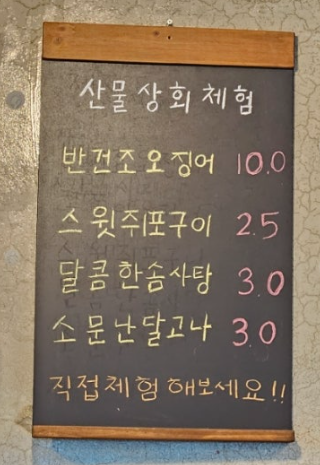 산물상회체험
반건조오징어 10.0
스윗쥐포구이 2.5
달콤한솜사탕 3.0
소문난달고나 3.0
직접체험해보세요!!